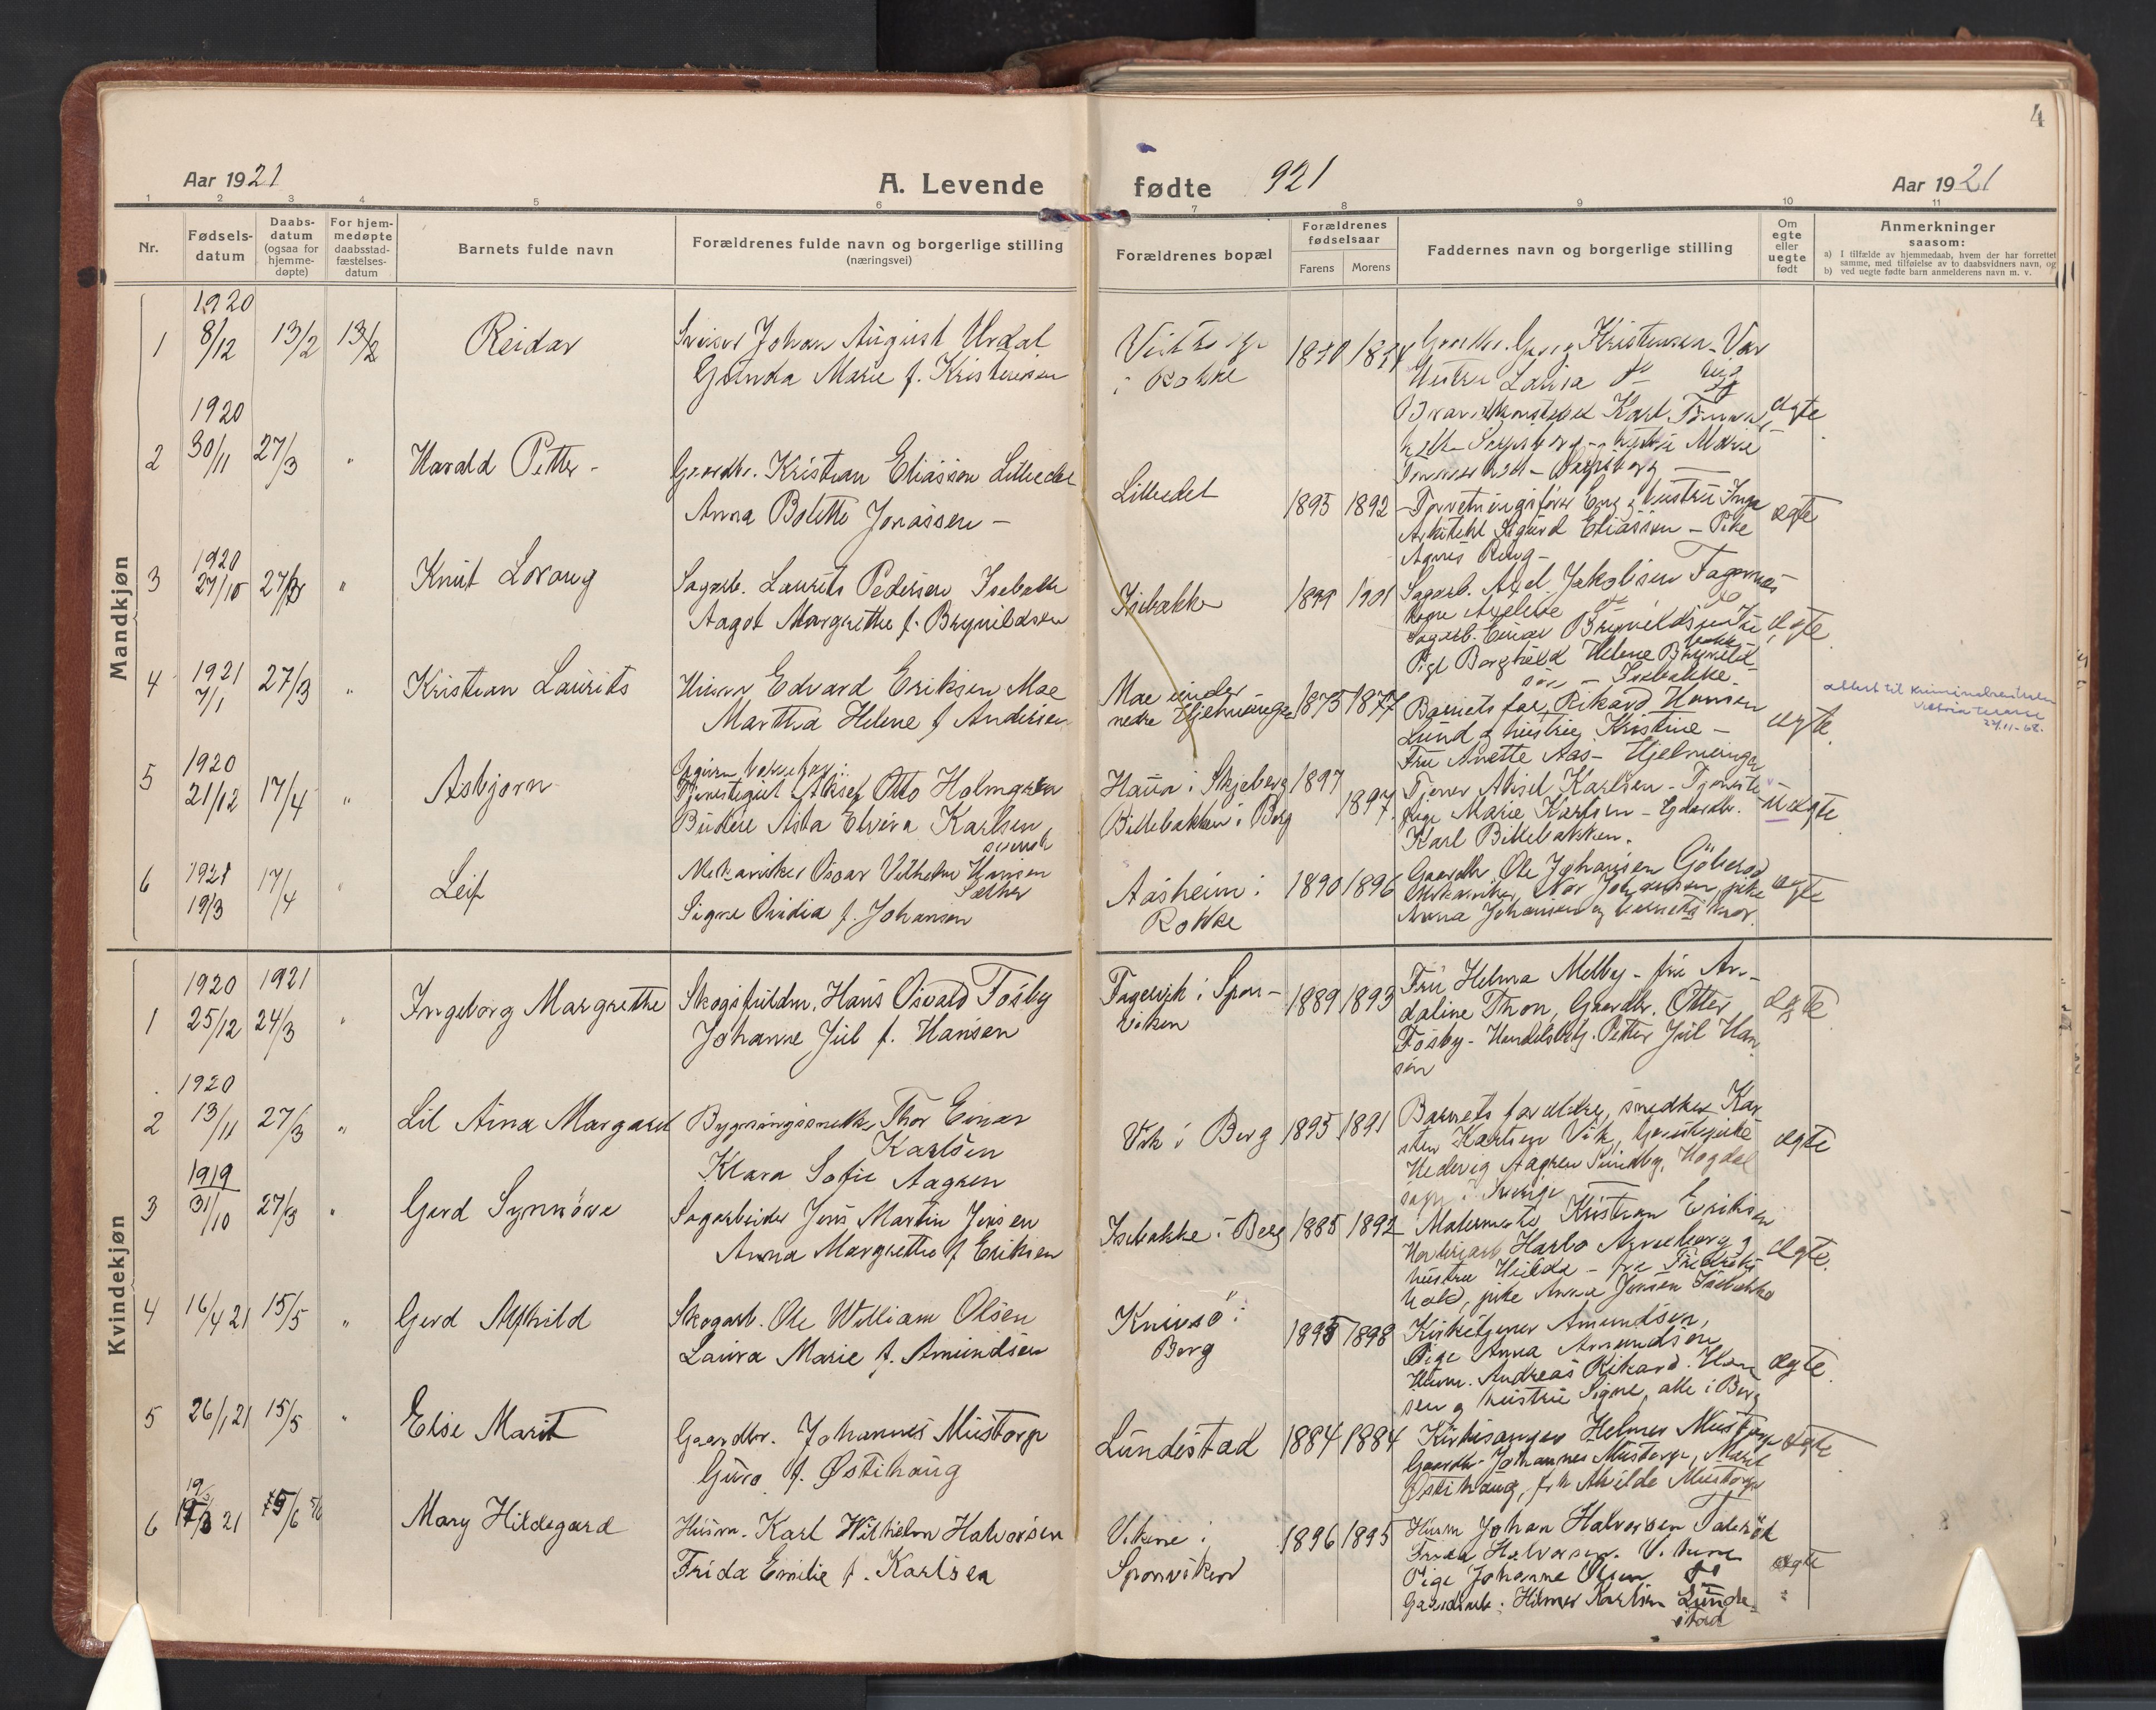 4
Aar 1921
A. Levende
fødte 921
Aar 1921
1 2 3 4 5 6 7 8 9 10 11
Nr.
Fødsels-
datum
Daabs-
datum
(ogsaa for
hjemme-
døpte)
For hjem-
medøpte
daabsstad-
fæstelses-
datum
Barnets fulde navn
Forældrenes fulde navn og borgerlige stilling
(næringsvei)
Forældrenes bopæl
Forældrenes
fødselsaar
Farens Morens
Faddernes navn og borgerlige stilling
Om
egte
eller
uegte
født
Anmerkninger
saasom:
a) I tilfælde av hjemmedaab, hvem der har forrettet
samme, med tilføielse av to daabsvidners navn, og
b) ved uegte fødte barn anmelderens navn m. v.
Mandkjøn
1920
1 8/12 13/2 13/2 Reidar
Johan August Urdal
Gunda Marie f. Kristensen
i Rokke
Kristensen
Hustru
Karl
Marie
ægte
1920
2 30/11 27/3 " Harald Petter -
Gaardbr. Kristian Eliassen Lilledal
Anna Bolette Jonassen -
Lilledal
1895 1892
Forretningsfører Berg og hustru Inga
Arkitekt Sigurd Eliassen - Pike
Agnes Berg -
ægte
1920
3 27/10 27/3 " Knut Lovang
Sagarb. Laurits Pedersen Isebakke
Aagot Margrethe f. Brynildsen
Isebakke
1899 1901
Sagarb. Axel Jakobsen Fagernæs
Sagarb. Einar Brynildsen Ise
bakke
Pige Borghild Helene Brynild
sen - Isebakke.
ægte
1921
4 7/1 27/3 " Kristian Laurits
Husm. Edvard Eriksen Moe
Martha Helene f. Andersen
Moe under
nedre Hjelmungen
1875 1877
Barnets far, Rikard Hansen
Lund og hustru Kristine -
Fru Anette Aas - Hjelmunga
ægte
Victoria terasse
22/11-68.
1920
5 21/12 17/4 " Asbjørn
Tjenestegut Aksel Otto Holmgren
Budeie Asta Elvira Karlsen
svensk
Haua i Skjeberg
Billebakken i Berg
1897
1897
Tjener Aksel Karlsen - Tjeneste
pige Marie Karlsen - Gaardbr.
Karl Billebakken.
uægte
1921
6 19/3 17/4 " Leif
Mekaniker Oscar Vilhelm Hansen
Sæther
Signe Ovidia f. Johansen
Aasheim i
Rokke
1890 1896
Gaardbr. Ole Johansen
Mekaniker Johansen, pike
Anna Johansen og barnets mor.
ægte
Kvindekjøn
1920 1921
1 25/12 24/3 " Ingeborg Margrethe
Skogsfuldm. Hans Osvald Fosby
Johanne Jul f. Hansen
Fagervik i Spon-
viken
1889 1893
Fru Helma Melby - fru An-
daline Thon, Gaardbr. Otter
Fosby - Handelsbetj. Petter Jul Han
sen
ægte
1920
2 13/11 27/3 " Lil Aina Margaret
Bygningssnekker Thor Einar
Karlsen
Klara Sofie Aagren
Vik i Berg
1895 1891
Barnets forældre, snedker Kar
sten Karlsen Vik,
Hedevig Aagren Sundby, Hogdal
sogn i Sverige
ægte
1919
3 31/10 27/3 " Gerd Synnöve
Sagarbeider Jens Martin Jensen
Anna Margrethe f. Eriksen
Isebakke i Berg
1885 1892
Kristian Eriksen
hustru Hilda - fra Fredriks
hald, pike Anna Jensen Isebakke
ægte.
4 16/4 21 15/5 " Gerd Alfhild
Skogarb. Ole William Olsen
Laura Marie f. Amundsen
Knivsö i
Berg
1895 1898
Kirketjener Amundsen,
Pige Anna Amundsen
Husm. Andreas Rikard Han
sen og hustru Signe, alle i Berg
ægte
5 26/1 21 15/5 " Else Marit
Gaardbr. Johannes Mustorp
Guro f. Østihaug
Lundestad
1884 1884
Kirkesanger Helmer Mustorp
Gaardbr. Johannes Mustorp, Marit
Østihaug, frk Milde Mustorp
ægte
6 21 5/6 Mary Hildegard
Husm. Karl Wilhelm Halvorsen
Frida Emilie f. Karlsen
Vikene i
Sponviken
1896 1895
Husm Johan Halvorsen
Frida Halvorsen. Vikene
Pige Johanne Olsen do
Gaardsarb. Hilmer Karlsen Lunde-
stad
ægte